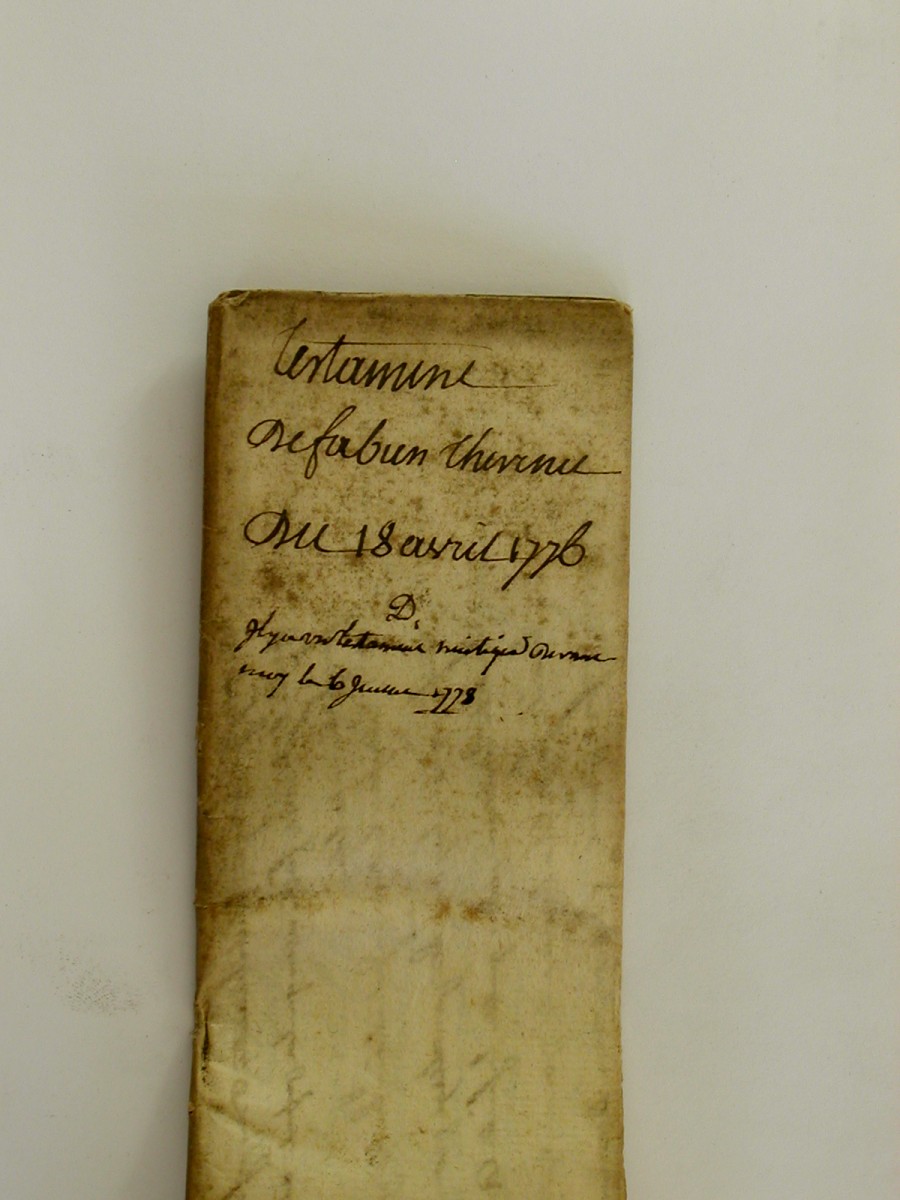 testament
De fabien thevenet
Du 18 avril 1776
D.
Il y a un testament mistique devant
moy le 6 Juillet 1778